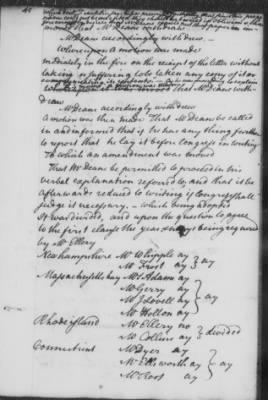 46
moved that Mr Deane withdraw
Mr Deane accordingly withdrew
Whereupon a motion was made
mediately in the fire on the receipt of the letter without
taking or suffering to be taken any copy of it or
that Mr Deane with-
draw
Mr Deane accordingly withdrew
a motion was then made That Mr Deane be called
in and informed that if he has any thing further
to report that he lay it before Congress in writing
To which an amendment was moved
That Mr Deane be permitted to proceed in his
verbal explanation referred to, and that it be
afterwards reduced to writing if Congress shall
judge it necessary. – which being adopted
It was divided, and upon the question to agree
to the first clause the yeas & nays being required
by Mr Ellery
New hampshire Mr Whipple ay
Mr Frost ay } ay
Massachusetts bay Mr Adams ay
Mr Gerry ay
Mr Lovell ay } ay
Mr Holton ay
Rhode island Mr Ellery no
Mr Collins ay } divided
Connecticut Mr Dyer ay
Mr Ellsworth ay } ay
Mr Root ay